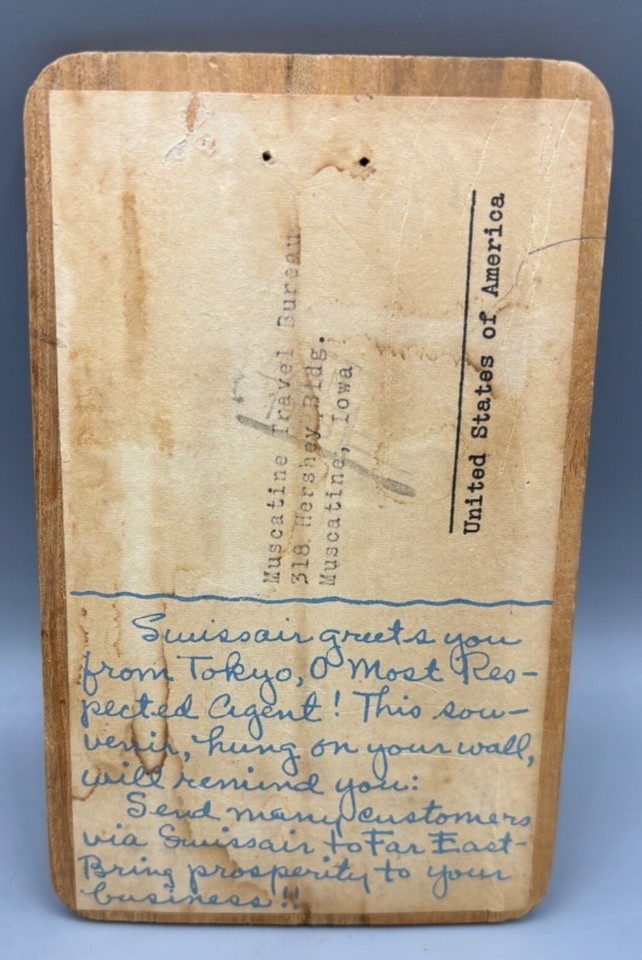 Muscatine Travel Bureau
318 Hershey Bldg.
Muscatine, Iowa
United States of America
Swissair greets you
from Tokyo, O Most Res-
pected Agent! This sou-
venir, hung on your wall,
will remind you:
Send many customers
via Swissair to Far East-
Bring prosperity to your
business!!